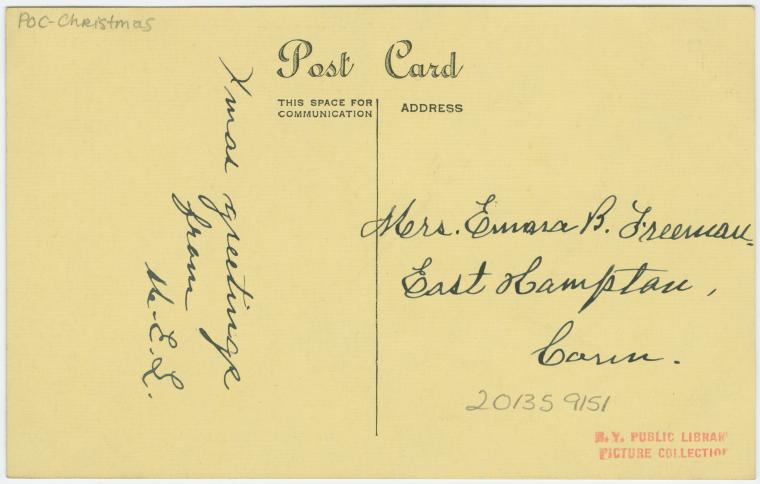 POC-Christmas
Post Card
THIS SPACE FOR
COMMUNICATION
ADDRESS
Xmas greetings
from
M.E.L.
Mrs. Emma B. Freeman
East Hampton,
Conn.
201359151
N.Y. PUBLIC LIBRAR
PICTURE COLLECTION